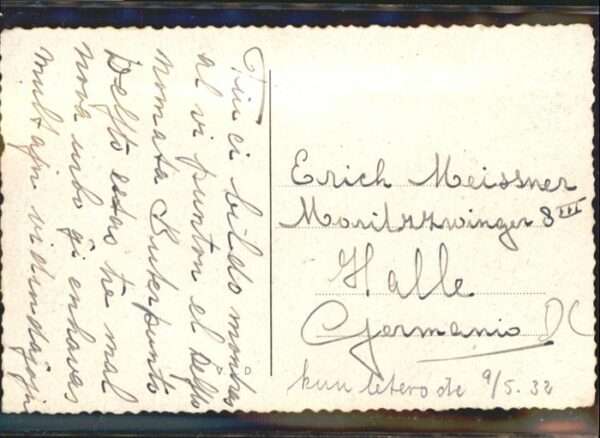 Tiu ci bildo montras
al vi punton el Delft
nomata Buterpunto
Delfto estas tre mal
nova urbo ĝi enhavas
multajn vidindaĵojn
Erich Meissner
Moritzzwinger 8 III
Halle
Germanio DC
kun letero de 9/5. 32